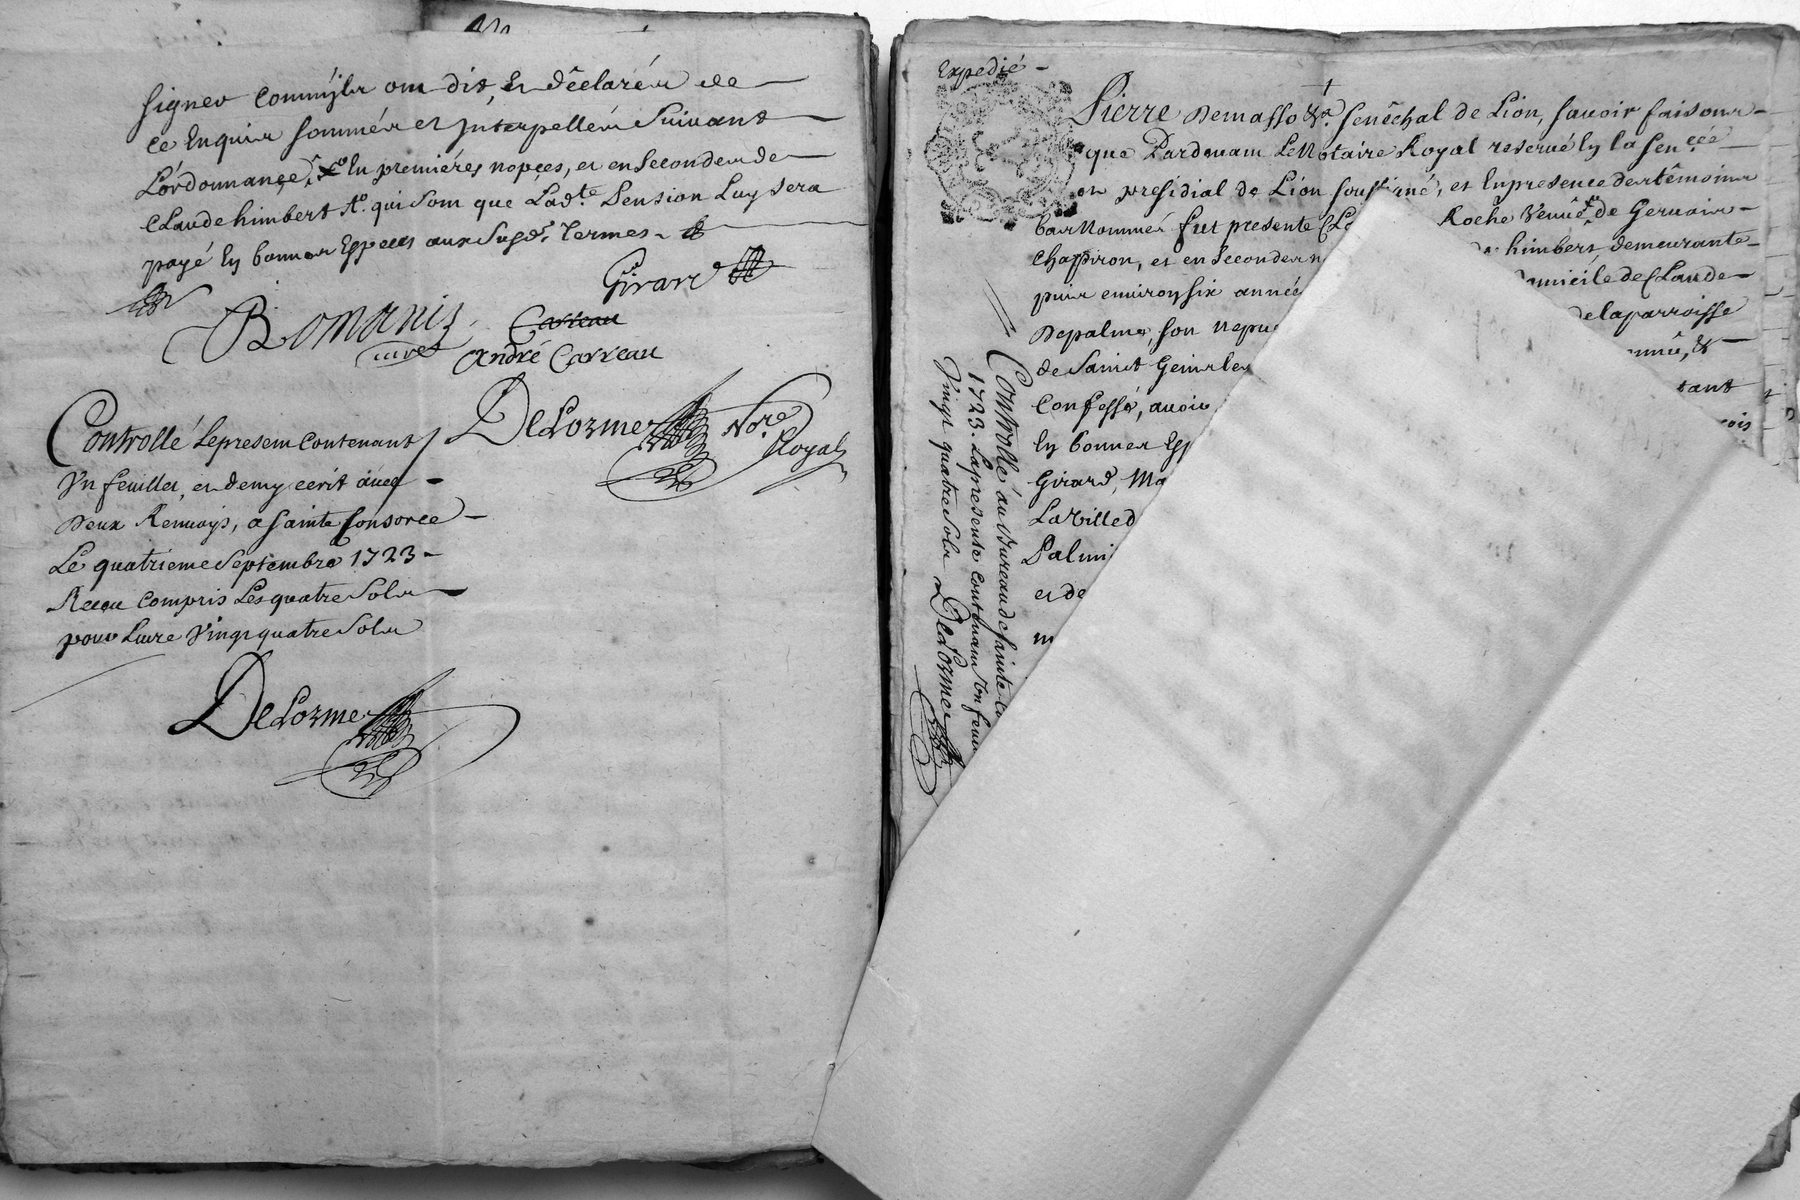 signer comme jls ont dit, et déclaré, de
ce Enquis sommés et Jnterpellés Suivant
L'ordonnançe, en premiéres nopçes, et en Secondes de
Claude himbert qui sont que Lad.te Pension Luy sera
payé En bonnes Especes aux Susd.s Termes
Girard
Romani curé
Carteau
andré Carreau
DeLorme No.re Royal
Controllé Lepresent Contenant
Vn feuillet, et demy ecrit avec
Deux Renvoys, a Sainte Consorce
Le quatrieme Septembre 1723
Receu Compris Les quatre Sols
pour Livre Vingt quatre Sols
DeLorme
Expedié
Pierre Demasso &a. Senêchal de Lion, sçavoir faisons
que Pardevant LeNotaire Royal reservé En la Sen.cée
et presidial de Lion soussigné, et En presence des têmoins
bas Nommés fut presente Roche Veuve de Gervais
Chapiron, et en Secondes n himbert, demeurante
puis environ six année domicile de Claude
Depalme, son Nepue de la parroisse
de Saint Genis les &
Confessé, avoir tant
En bonnes Esp rois
Girard, Ma
La Ville d
Palmi
et de
Controllé au Bureau de Sainte Co
1723. La presente contenant Vn feui
Vingt quatre Sols DeLorme